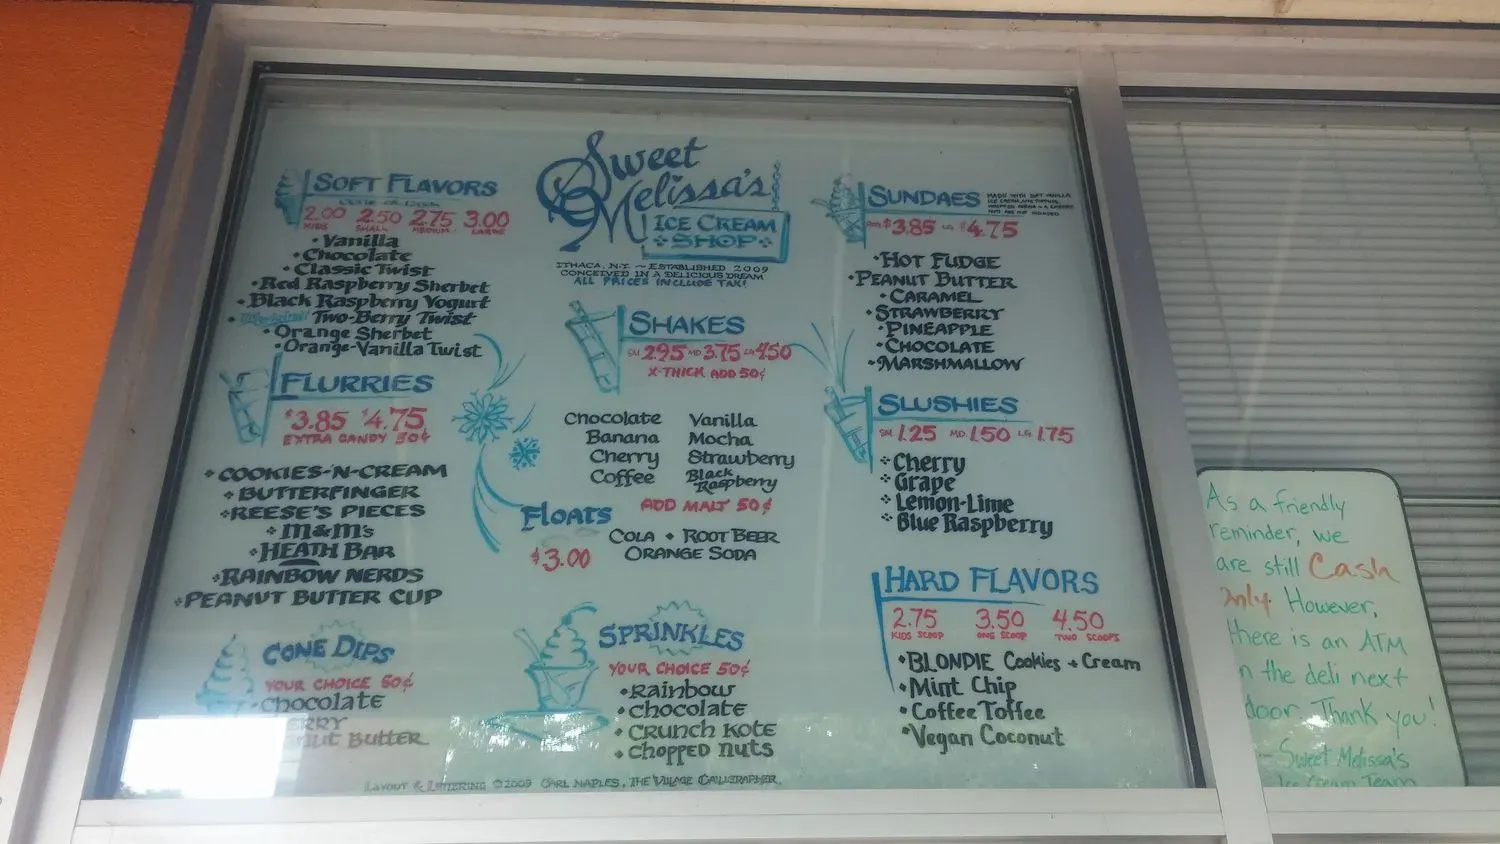 Sweet
Melissa's
ICE CREAM
SHOP
ITHACA, N.Y. ~ ESTABLISHED 2009
CONCEIVED IN A DELICIOUS DREAM
ALL PRICES INCLUDE TAX!
SOFT FLAVORS
2.00 2.50 2.75 3.00
KIDS SMALL MEDIUM LARGE
• Vanilla
• Chocolate
• Classic Twist
• Red Raspberry Sherbet
• Black Raspberry Yogurt
• Two-Berry Twist
• Orange Sherbet
• Orange-Vanilla Twist
FLURRIES
$3.85 $4.75
EXTRA CANDY 50¢
• COOKIES-'N-CREAM
• BUTTERFINGER
• REESE'S PIECES
• M&M's
• HEATH BAR
• RAINBOW NERDS
• PEANUT BUTTER CUP
CONE DIPS
YOUR CHOICE 50¢
• Chocolate
BUTTER
SHAKES
SM 2.95 MD 3.75 LG 4.50
X-THICK ADD 50¢
Chocolate Vanilla
Banana Mocha
Cherry Strawberry
Coffee Black Raspberry
ADD MALT 50¢
FLOATS
$3.00
COLA • ROOT BEER
ORANGE SODA
SPRINKLES
YOUR CHOICE 50¢
• Rainbow
• Chocolate
• Crunch Kote
• Chopped Nuts
SUNDAES
MADE WITH SOFT VANILLA
ICE CREAM, ONE TOPPING,
WHIPPED CREAM & A CHERRY.
NUTS ARE NOT INCLUDED
SM $3.85 LG $4.75
• HOT FUDGE
• PEANUT BUTTER
• CARAMEL
• STRAWBERRY
• PINEAPPLE
• CHOCOLATE
• MARSHMALLOW
SLUSHIES
SM 1.25 MD 1.50 LG 1.75
• Cherry
• Grape
• Lemon-Lime
• Blue Raspberry
HARD FLAVORS
2.75 3.50 4.50
KIDS SCOOP ONE SCOOP TWO SCOOPS
• BLONDIE Cookies + Cream
• Mint Chip
• Coffee Toffee
• Vegan Coconut
LAYOUT & LETTERING ©2009 CARL NAPLES, THE VILLAGE CALLIGRAPHER.
As a friendly
reminder, we
are still Cash
Only. However,
there is an ATM
in the deli next
door. Thank you!
- Sweet Melissa's
Ice Cream Team